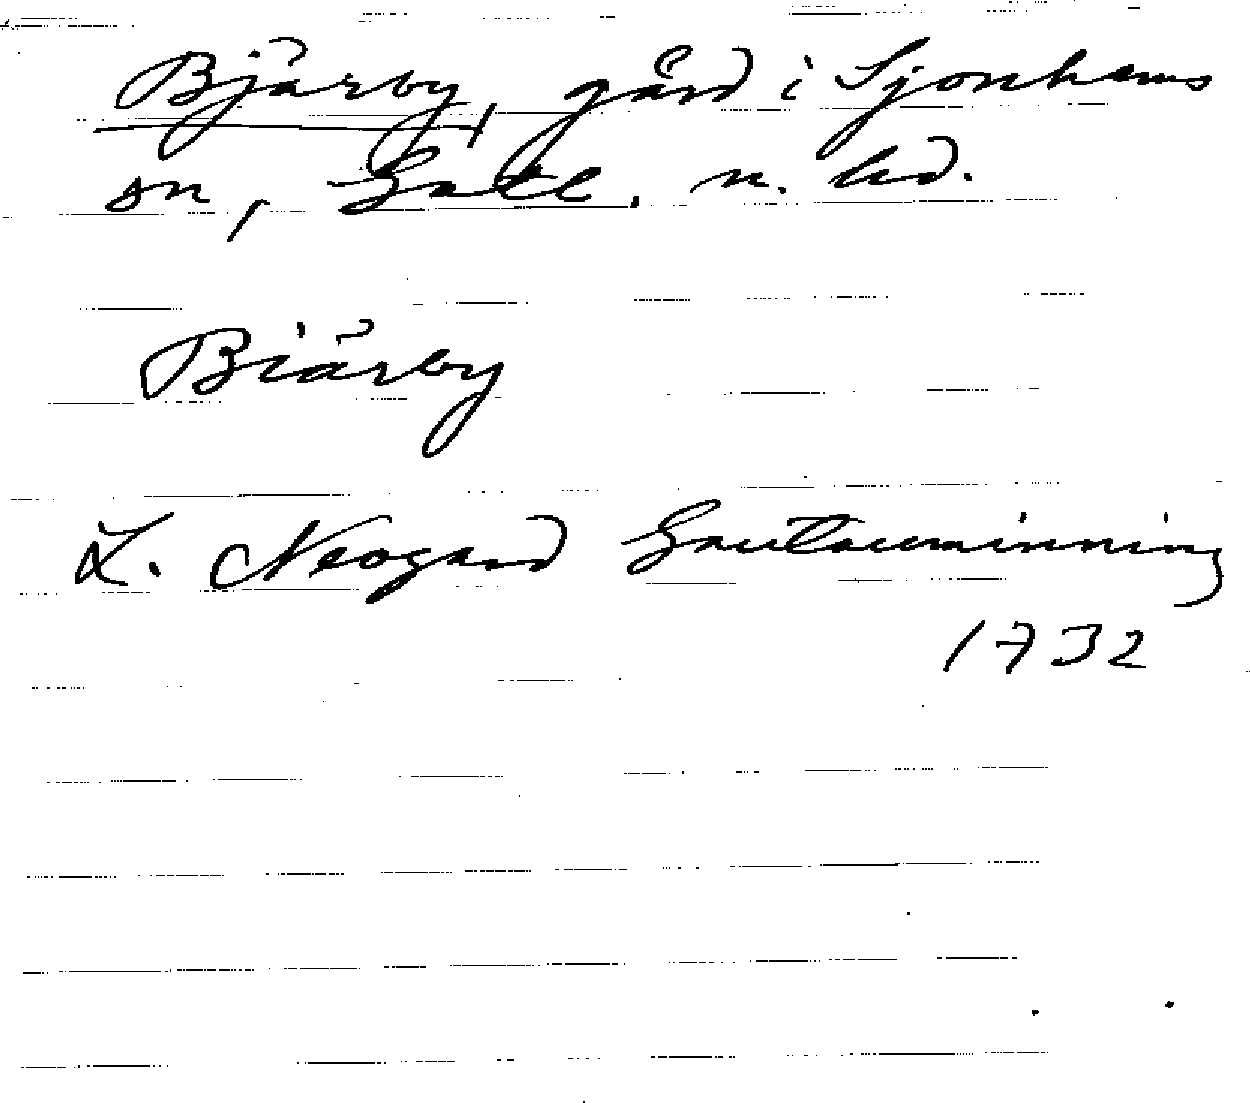 Bjärby, gård i Sjonhems
sn, Gotl. n. hd.
Biärby
L. Neogard Gautauminning
1732